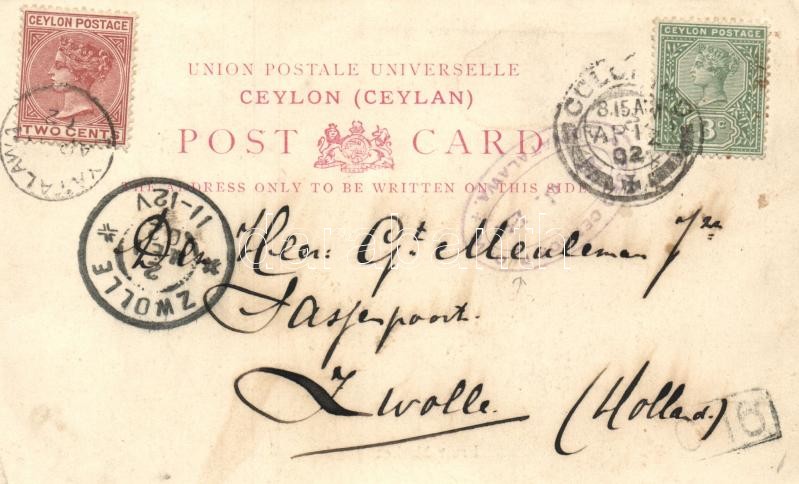 CEYLON POSTAGE
TWO CENTS
CEYLON POSTAGE
UNION POSTALE UNIVERSELLE
CEYLON (CEYLAN)
POST CARD
THE ADDRESS ONLY TO BE WRITTEN ON THIS SIDE
COLOMBO
8.15 A
AP 12
02
ZWOLLE
11-12V
Den Heer Gt. Meuleman Jzn
Sassenpoort.
Zwolle.
(Holland.)
darabanth